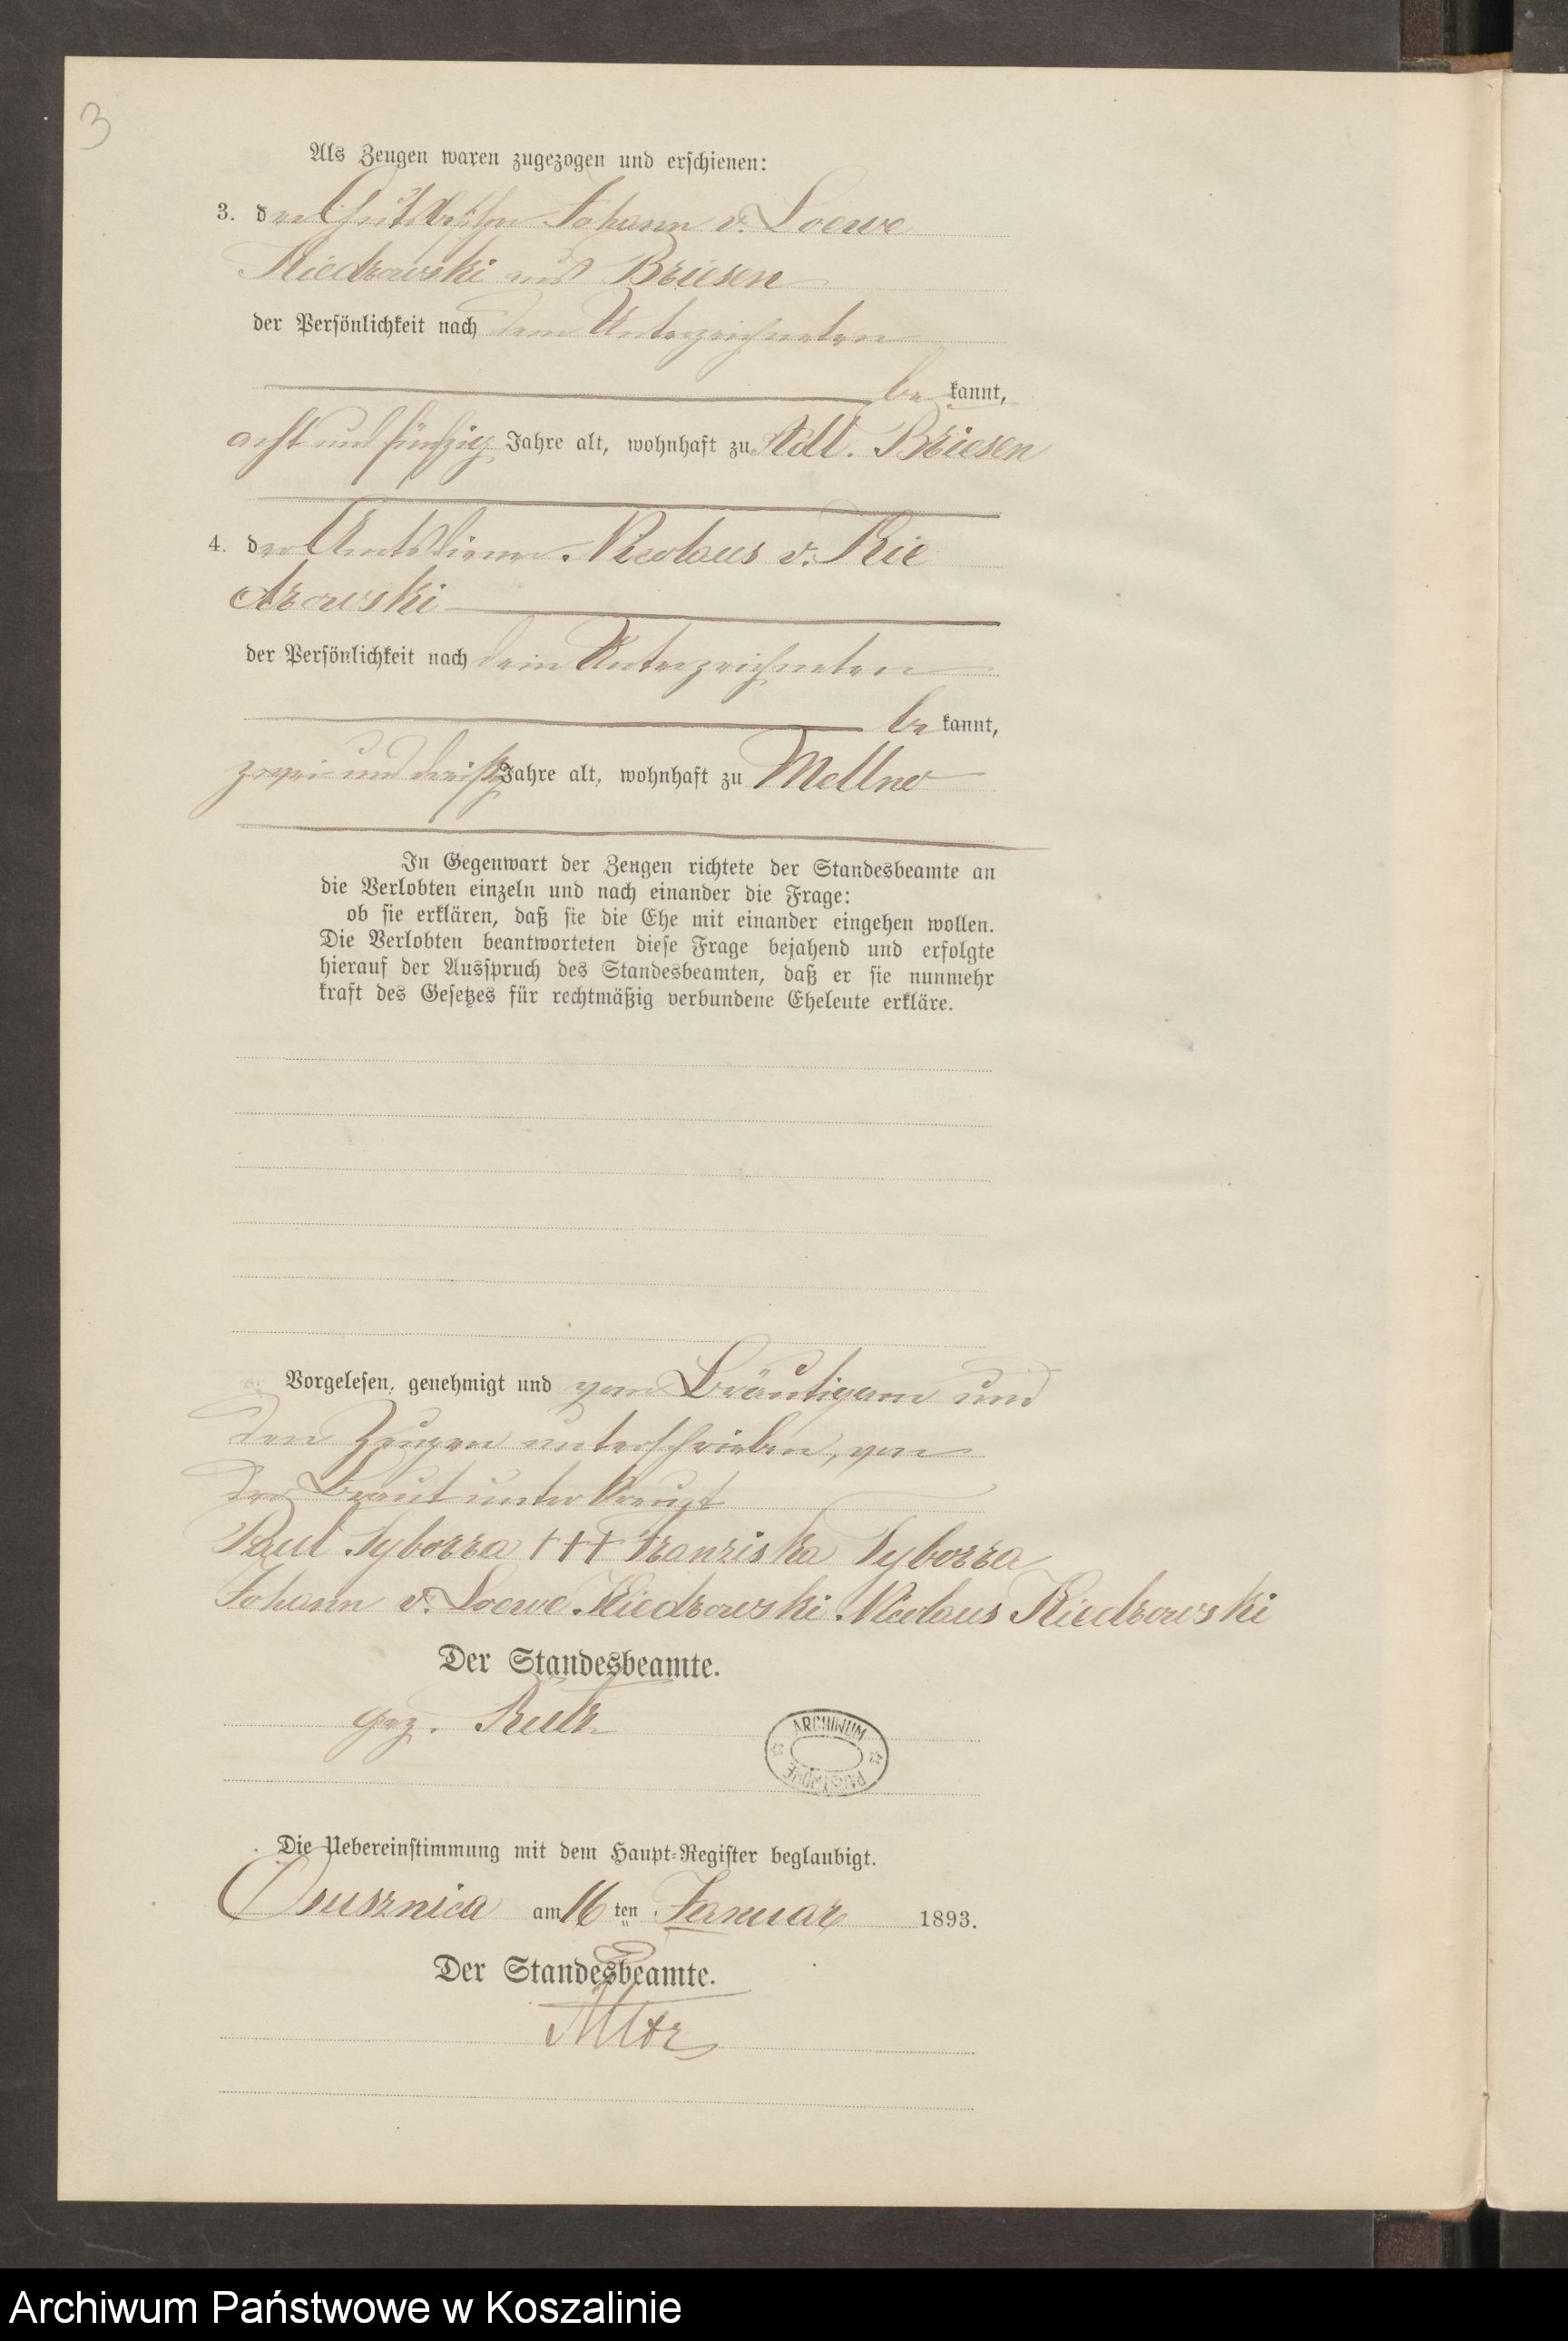 3
Als Zeugen waren zugezogen und erschienen:
3. der Gutsbesitzer Johann v. Loewe
Kiedrowski aus Briesen
der Persönlichkeit nach dem Unterzeichneten
be kannt,
acht und fünfzig Jahre alt, wohnhaft zu Adl. Briesen
4. der Amtsdiener Nicolaus v. Kie
drowski
der Persönlichkeit nach dem Unterzeichneten
be kannt,
zwei und dreißig Jahre alt, wohnhaft zu Mellno
In Gegenwart der Zeugen richtete der Standesbeamte an
die Verlobten einzeln und nach einander die Frage:
ob sie erklären, daß sie die Ehe mit einander eingehen wollen.
Die Verlobten beantworteten diese Frage bejahend und erfolgte
hierauf der Ausspruch des Standesbeamten, daß er sie nunmehr
kraft des Gesetzes für rechtmäßig verbundene Eheleute erkläre.
Vorgelesen, genehmigt und vom Bräutigam und
den Zeugen unterschrieben, von
der Braut unterkreuzt
Paul Tyborra +++ Franziska Tyborra
Johann v. Loewe Kiedrowski Nicolaus Kiedrowski
Der Standesbeamte.
gez.
ARCHIWUM
PAŃSTWOWE
Die Uebereinstimmung mit dem Haupt-Register beglaubigt.
Ossusznica am 16 ten Januar 1893.
Der Standesbeamte.
Archiwum Państwowe w Koszalinie